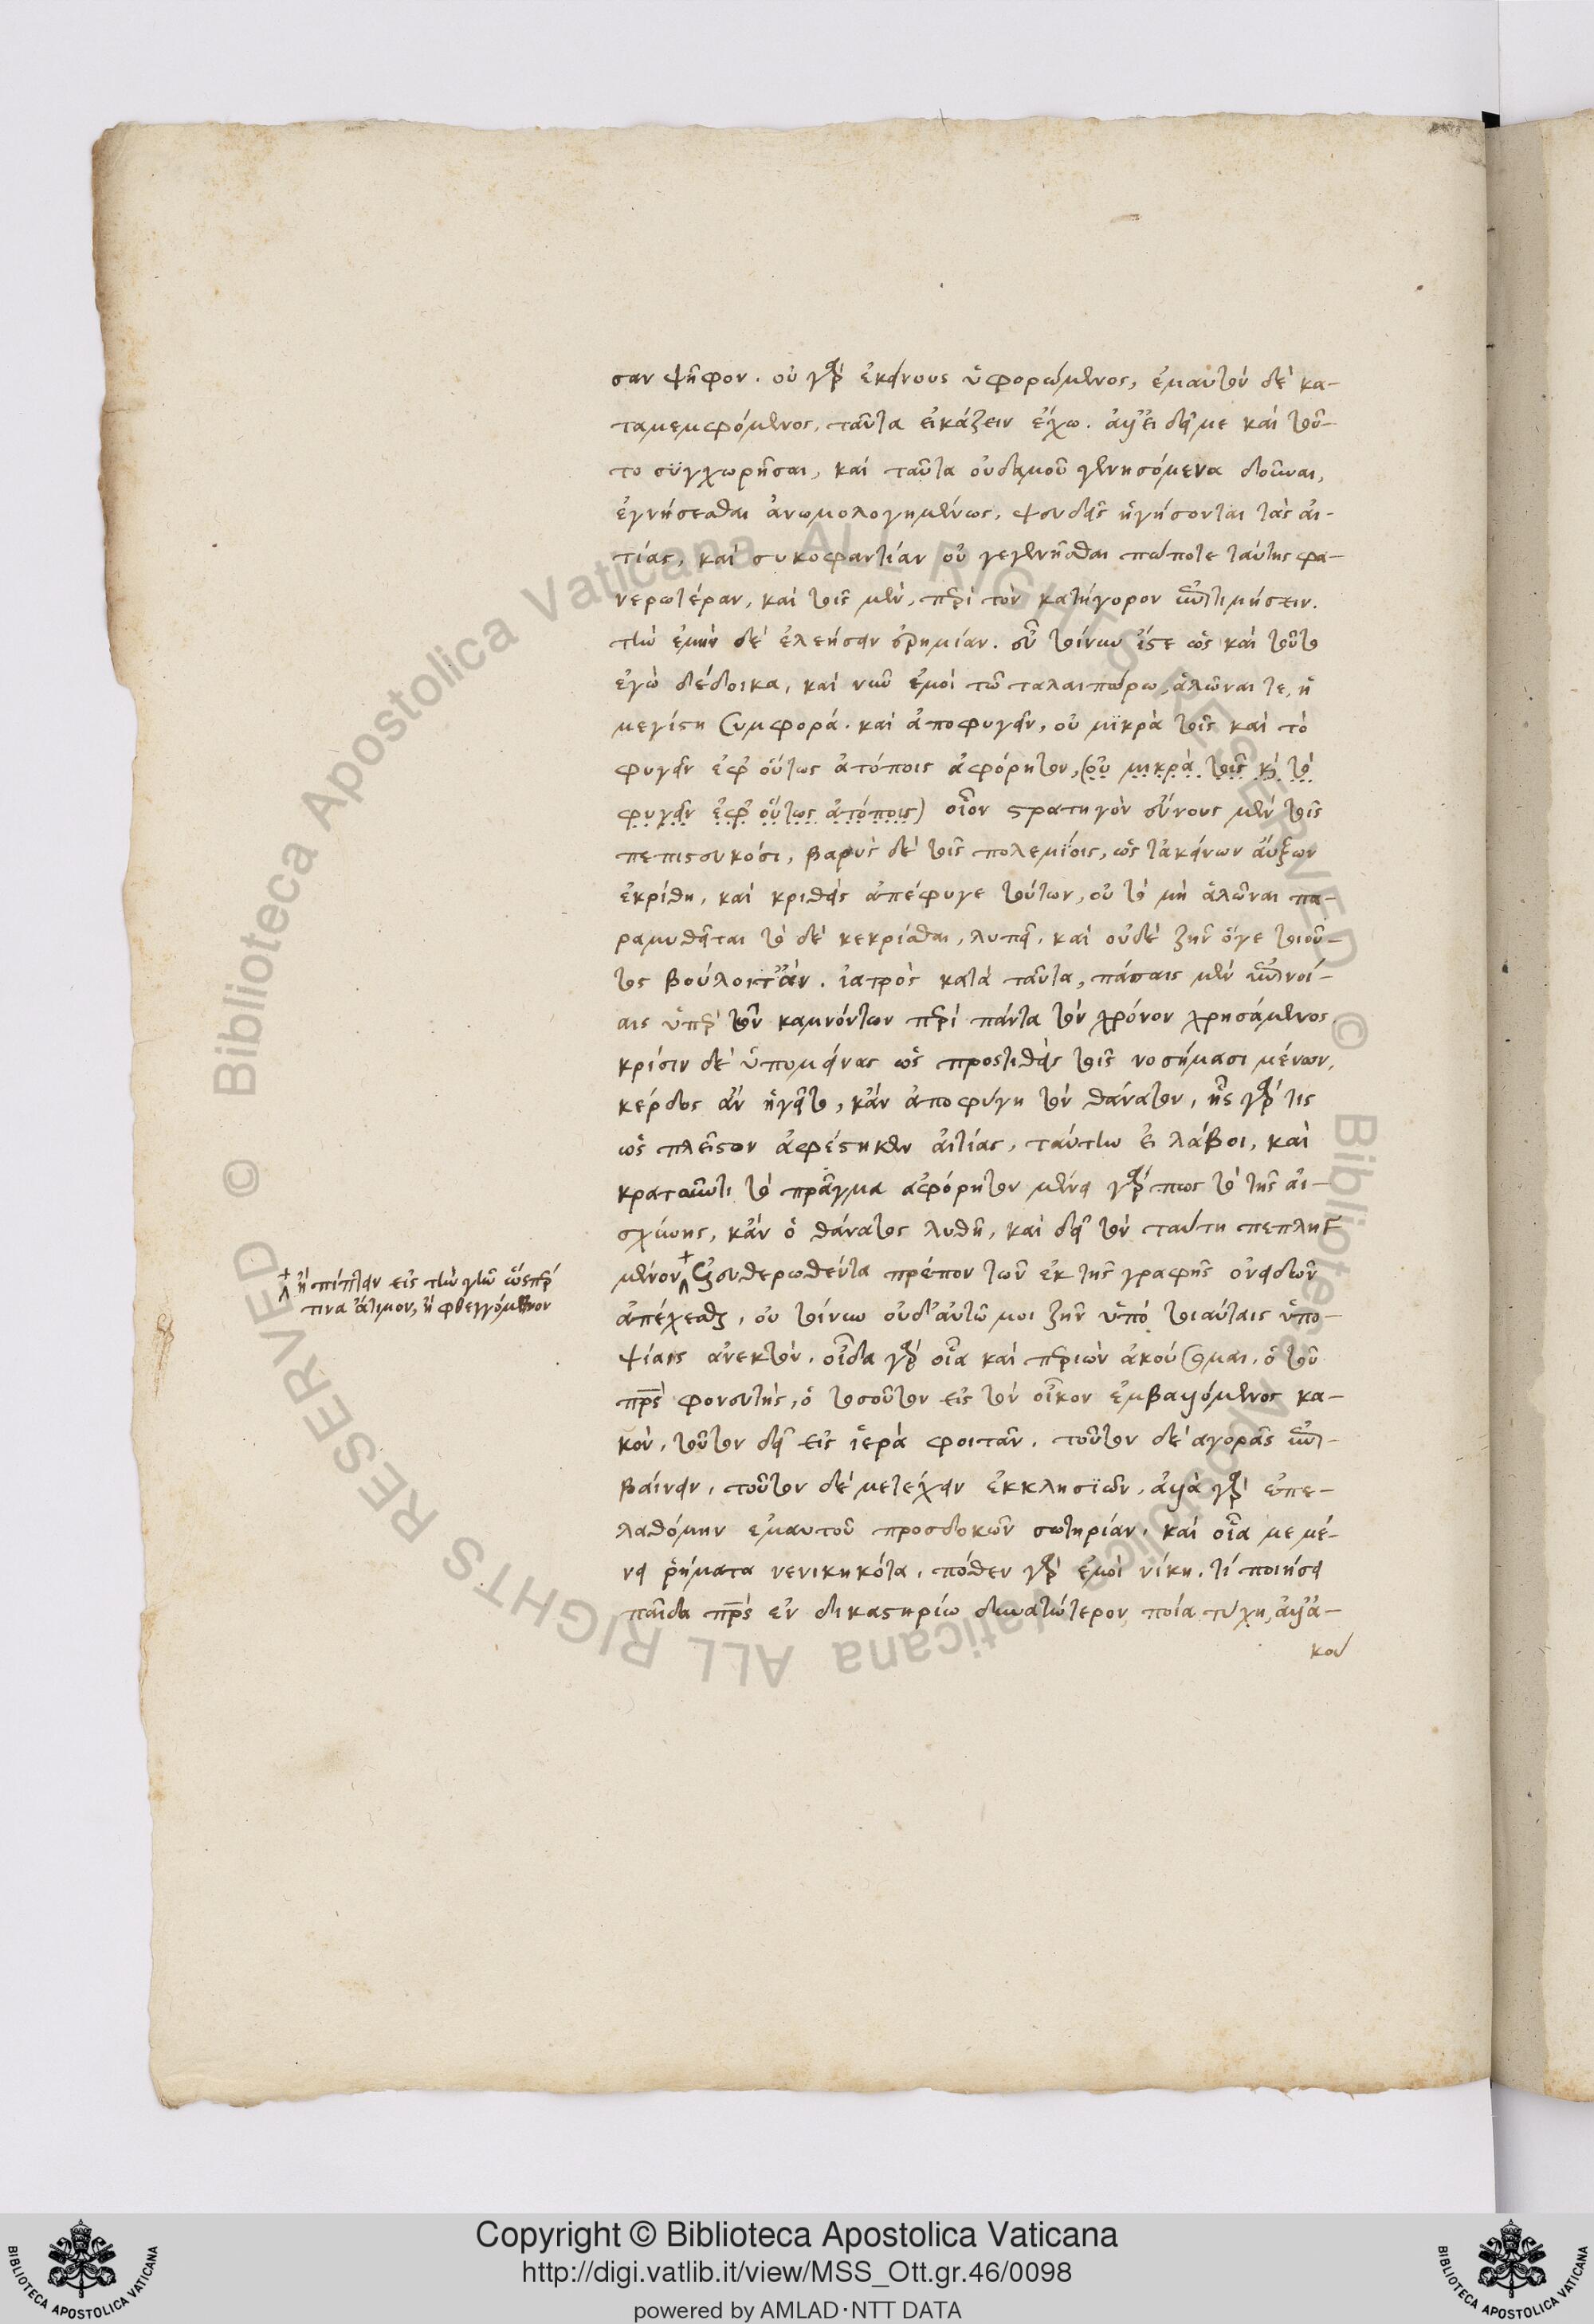 σαν ψῆφον. οὐ γὰρ ἐκείνους ὑφορώμενος, ἐμαυτὸν δὲ κα-
ταμεμφόμενος, ταῦτα εἰκάζειν ἔχω. ἀλλ' εἰ δεῖ με καὶ τοῦ-
το συγχωρῆσαι, καὶ ταῦτα οὐδαμοῦ γενησόμενα δοῦναι,
ἀνωμολογημένως, ψευδεῖς ἡγήσονται τὰς αἰ-
τίας, καὶ συκοφαντίαν οὐ γεγενῆσθαι πώποτε ταύτης φα-
νερωτέραν, καὶ τοῖς μὲν, περὶ τὸν κατήγορον ἐπιτιμήσειν.
τὴν ἐμὴν δὲ ἐλεήσειν ἐρημίαν. εὖ τοίνυν ἴστε ὡς καὶ τοῦτο
ἐγὼ δέδοικα, καὶ νῦν ἐμοὶ τῶ ταλαιπώρω, ἁλῶναι τε, ἡ
μεγίστη συμφορά. καὶ ἀποφυγεῖν, οὐ μϊκρὰ τοῖς καὶ τὸ
φυγεῖν ἐφ' οὕτως ἀτόποις ἀφόρητον, (οὐ μικρὰ τοῖς κὶ τὸ
φυγεῖν ἐφ' οὕτως ἀτόποις) οἷον στρατηγὸν εὔνους μὲν τοῖς
πεπιστευκόσι, βαρὺς δὲ τοῖς πολεμίοις, ὡς τἀκείνων αὔξων
ἐκρίθη, καὶ κριθεὶς ἀπέφυγε τούτων, οὐ τὸ μὴ ἁλῶναι πα-
ραμυθεῖται τὸ δὲ κεκρίσθαι, λυπεῖ, καὶ οὐδὲ ζῆν ὅγε τοιοῦ-
τος βούλοιτ' ἂν. ἰατρὸς κατὰ ταῦτα, πάσαις μὲν ἐπινοί-
αις ὑπὲρ τῶν καμνόντων περὶ πάντα τὸν χρόνον χρησάμενος.
κρίσιν δὲ ὑπομείνας ὡς προστιθεὶς τοῖς νοσήμασι μένων,
κέρδος ἂν ἡγεῖτο, κἂν ἀποφύγη τὸν θάνατον, ἧς γὰρ τις
ὡς πλεῖστον ἀφέστηκεν αἰτίας, ταύτην εἰ λάβοι, καὶ
τὸ πρᾶγμα ἀφόρητον μένει γάρ πως τὸ τῆς αἰ-
σχύνης, κἂν ὁ θάνατος λυθῆ, καὶ δεῖ τὸν ταύτη πεπληγ
μένον ἐξευθερωθέντα πρέπον τῶν ἐκ τῆς γραφῆς ὀνειδῶν
ἀπέχεσθαι, οὐ τοίνυν οὐδ' αὐτῶ μοι ζῆν ὑπὸ τοιαύταις ὑπο-
ψίαις ἀνεκτὸν. οἶδα γὰρ οἷα καὶ περιιὼν ἀκούσομαι. ὁ τοῦ
πατρὸς φονευτὴς, ὁ τοσοῦτον εἰς τὸν οἶκον ἐμβαλλόμενος κα-
κὸν, τοῦτον δεῖ εἰς ἱερὰ φοιτᾶν. τοῦτον δὲ ἀγορᾶς ἐπι-
βαίνειν, τοῦτον δὲ μετέχειν ἐκκλησϊῶν. ἀλλὰ γὰρ ἐπε-
λαθόμην ἐμαυτοῦ προσδοκῶν σωτηρίαν. καὶ οἷα με μέ-
νει ῥήματα νενικηκότα. πόθεν γὰρ ἐμοὶ νίκη. τί ποιήσει
παῖδα πατρὸς ἐν δικαστηρίω δυνατώτερον, ποία τύχη, ἀλλ' ἀ-
κου
ἢ πίπτειν εἰς τὴν γῆν ὥσπερ
τινα ἄτιμον, ἢ φθεγγόμενον
Copyright © Biblioteca Apostolica Vaticana
http://digi.vatlib.it/view/MSS_Ott.gr.46/0098
powered by AMLAD·NTT DATA
BIBLIOTECA APOSTOLICA VATICANA
BIBLIOTECA APOSTOLICA VATICANA
© Biblioteca Apostolica Vaticana ALL RIGHTS RESERVED
© Biblioteca Apostolica Vaticana ALL RIGHTS RESERVED